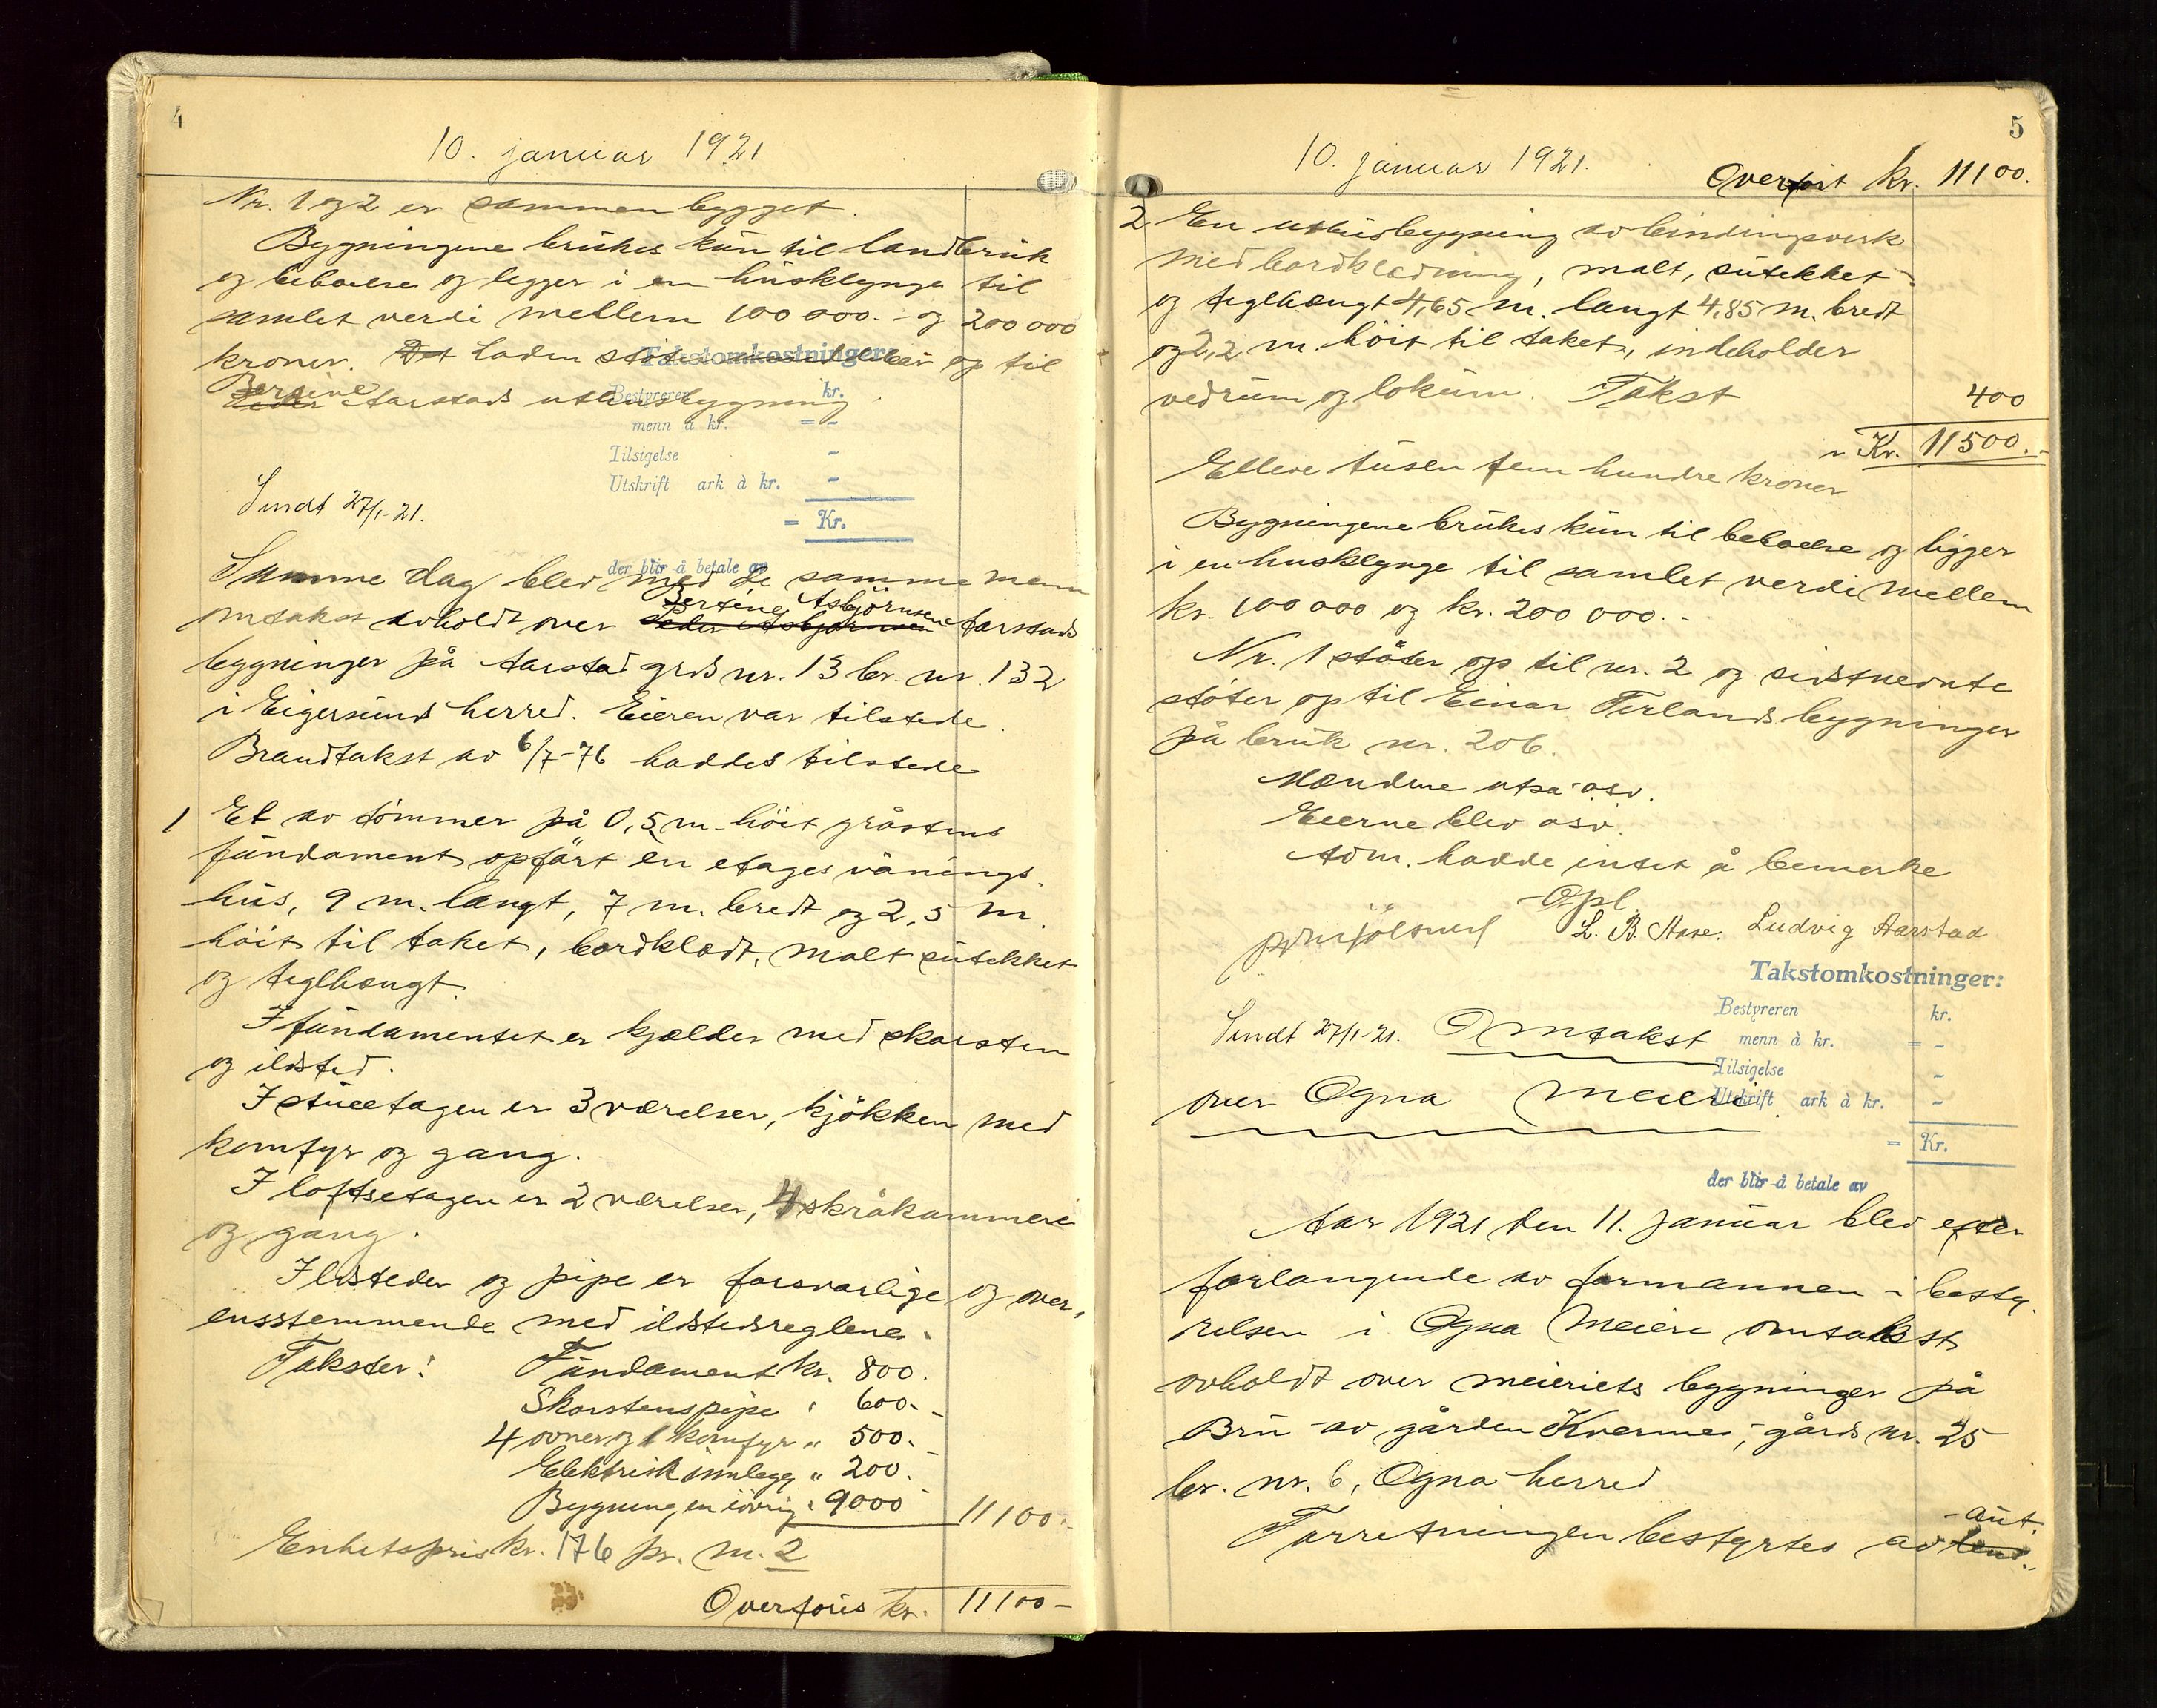 4
10. januar 1921
Nr. 1 og 2 er sammenbygget.
Bygningene brukes kun til landbruk
og beboelse og legger i en husklynge til
samlet verdi mellem 100 000.- og 200 000
kroner. Det Laden støter op til
Takstomkostninger:
Bersine
Peder Aarstads uthusbygning
Bestyreren kr.
menn à kr. = -
Tilsigelse -
Utskrift ark à kr. -
Sendt 27/1-21.
= Kr.
der blir å betale av
Samme dag blev med de samme menn
Bertine Asbjörnsen
omtakst avholdt over Peder Asbjørnsen Aarstads
bygninger på Aarstad grds nr. 13 br. nr. 132
i Eigersund herred. Eieren var tilstede.
Brandtakst av 6/7-76 haddes tilstede
1 Et av tömmer på 0,5 m. höit gråstens
fundament opfört èn etages vånings-
hus, 9 m. langt, 7 m. bredt og 2,5 m.
höit til taket, bordklædt, malt sutekket
og teglhængt.
I fundamentet er kjælder med skorsten
og ildsted.
I stueetagen er 3 værelser, kjökken med
komfyr og gang.
I loftsetagen er 2 værelser, 4 skråkammere
og gang.
Ildsteder og pipe er forsvarlige og over-
ensstemmende med ildstedsreglene.
Takster: Fundament kr. 800.
Skorstenspipe " 600.-
4 ovner og 1 komfyr " 500.-
Elektrisk innlegg " 200.-
Bygningen iövrig " 9000 11100.-
Enhetspris kr. 176 pr. m.2
Overföres kr. 11100-
5
10. januar 1921.
Overfört kr. 11100.
2 En uthusbygning av bindingsverk
med bordklædning, malt, sutekket
og teglhængt 4,65 m. langt 4,85 m. bredt
og 2,2 m. höit til taket, indeholder
vedrum og lokum. Takst 400
Kr. 11500.-
Elleve tusen fem hundre kroner
Bygningene brukes kun til beboelse og ligger
i en husklynge til samlet verdi mellem
kr. 100 000 og kr. 200 000.-
Nr. 1 stöter op til nr. 2 og sidstnevnte
stöter op til Einar Terlands bygninger
på bruk nr. 206.
Mændene utsa osv.
Eierne blev osv.
Adm. hadde intet å bemerke
Opl.
L. B. Aase. Ludvig Aarstad
Takstomkostninger:
Bestyreren kr.
Sendt 27/1-21. Omtakst
menn à kr. = -
Tilsigelse -
over Ogna Meieri.
Utskrift ark à kr. -
= Kr.
der blir å betale av
Aar 1921 den 11. januar blev efter
forlangende av formannen i besty-
relsen i Ogna Meieri omtakst
avholdt over meieriets bygninger på
Bru av gården Kvermes, gårds nr. 25
br. nr. 6, Ogna herred
aut.
Forretningen bestyrtes av lens.-